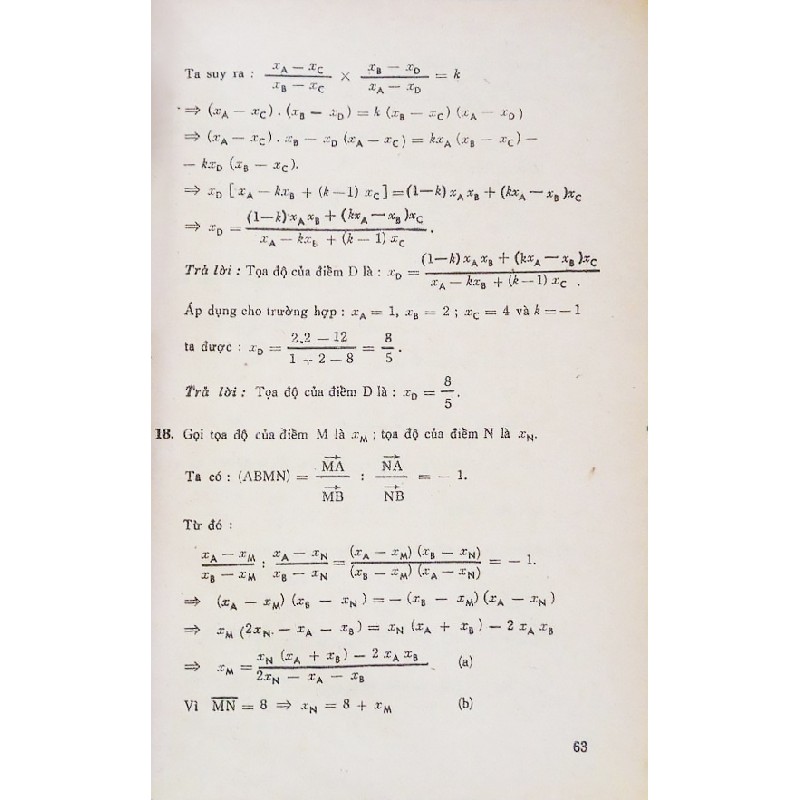 Ta suy ra : (x_A − x_C)/(x_B − x_C) × (x_B − x_D)/(x_A − x_D) = k
⇒ (x_A − x_C) . (x_B − x_D) = k (x_B − x_C) (x_A − x_D)
⇒ (x_A − x_C) . x_B − x_D (x_A − x_C) = kx_A (x_B − x_C) −
− kx_D (x_B − x_C).
⇒ x_D [x_A − kx_B + (k−1) x_C] = (1−k) x_A x_B + (kx_A − x_B)x_C
⇒ x_D = ((1−k) x_A x_B + (kx_A − x_B)x_C)/(x_A − kx_B + (k − 1) x_C).
Trả lời : Tọa độ của điểm D là : x_D = ((1−k) x_A x_B + (kx_A − x_B)x_C)/(x_A − kx_B + (k−1) x_C) .
Áp dụng cho trường hợp : x_A = 1, x_B = 2 ; x_C = 4 và k = − 1
ta được : x_D = (2.2 − 12)/(1 + 2 − 8) = 8/5 .
Trả lời : Tọa độ của điểm D là : x_D = 8/5.
18. Gọi tọa độ của điểm M là x_M ; tọa độ của điểm N là x_N.
Ta có : (ABMN) = MA/MB : NA/NB = − 1.
Từ đó :
(x_A − x_M)/(x_B − x_M) : (x_A − x_N)/(x_B − x_N) = ((x_A − x_M) (x_B − x_N))/((x_B − x_M) (x_A − x_N)) = − 1.
⇒ (x_A − x_M) (x_B − x_N) = − (x_B − x_M) (x_A − x_N)
⇒ x_M (2x_N − x_A − x_B) = x_N (x_A + x_B) − 2 x_A x_B
⇒ x_M = (x_N (x_A + x_B) − 2 x_A x_B)/(2x_N − x_A − x_B) (a)
Vì MN = 8 ⇒ x_N = 8 + x_M (b)
63